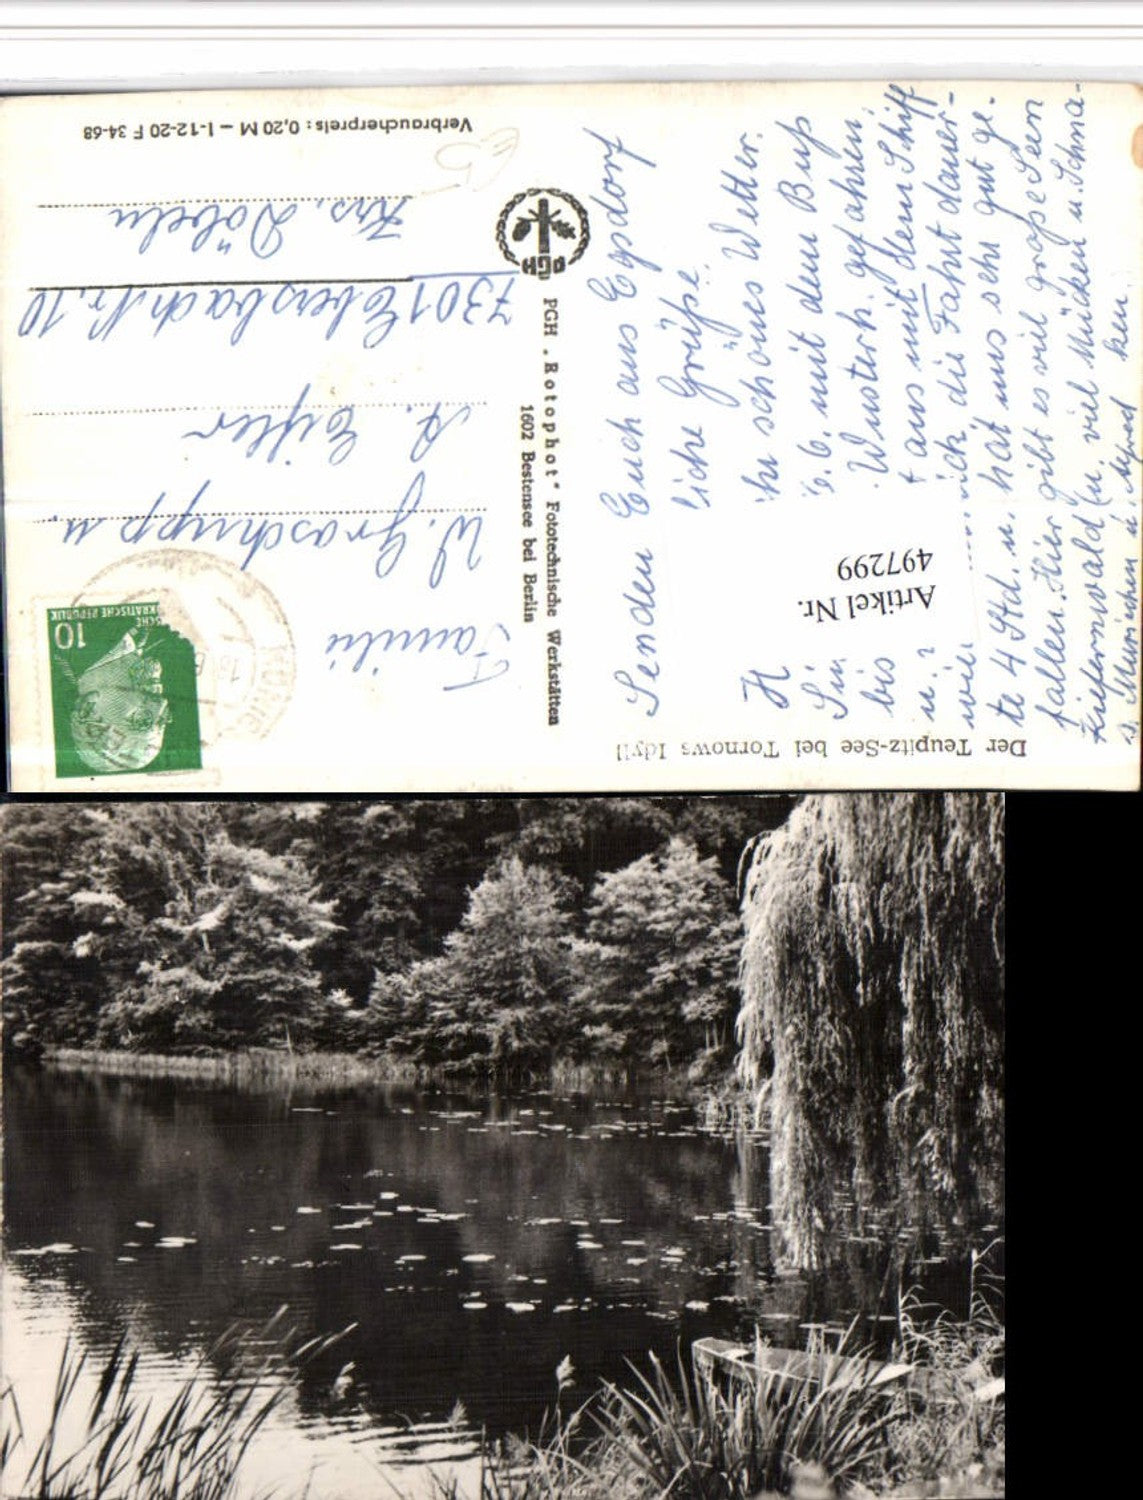 Der Teupitz-See bei Tornows Idyll
Senden Euch aus Egsdorf
liche Grüße.
H
hr schönes Wetter.
Si
6.6. mit dem Buß
bis
Wusterh. gefahren,
u.
aus mit dem Schiff
wie
ich die Fahrt dauer-
te 4 Std. u. hat uns sehr gut ge-
fallen. Hier gibt es viel große Seen
Kiefernwald (u. viel Mücken u. Schna-
ken.
Artikel Nr.
497299
PGH „Rotophot“ Fototechnische Werkstätten
1602 Bestensee bei Berlin
PGH
10
KRATISCHE REPUBLIK
Familie
W. Graschupp u.
A. Eißler
7301 Ebersbach Nr. 10
Krs. Döbeln
Verbraucherpreis: 0,20 M – I-12-20 F 34-68